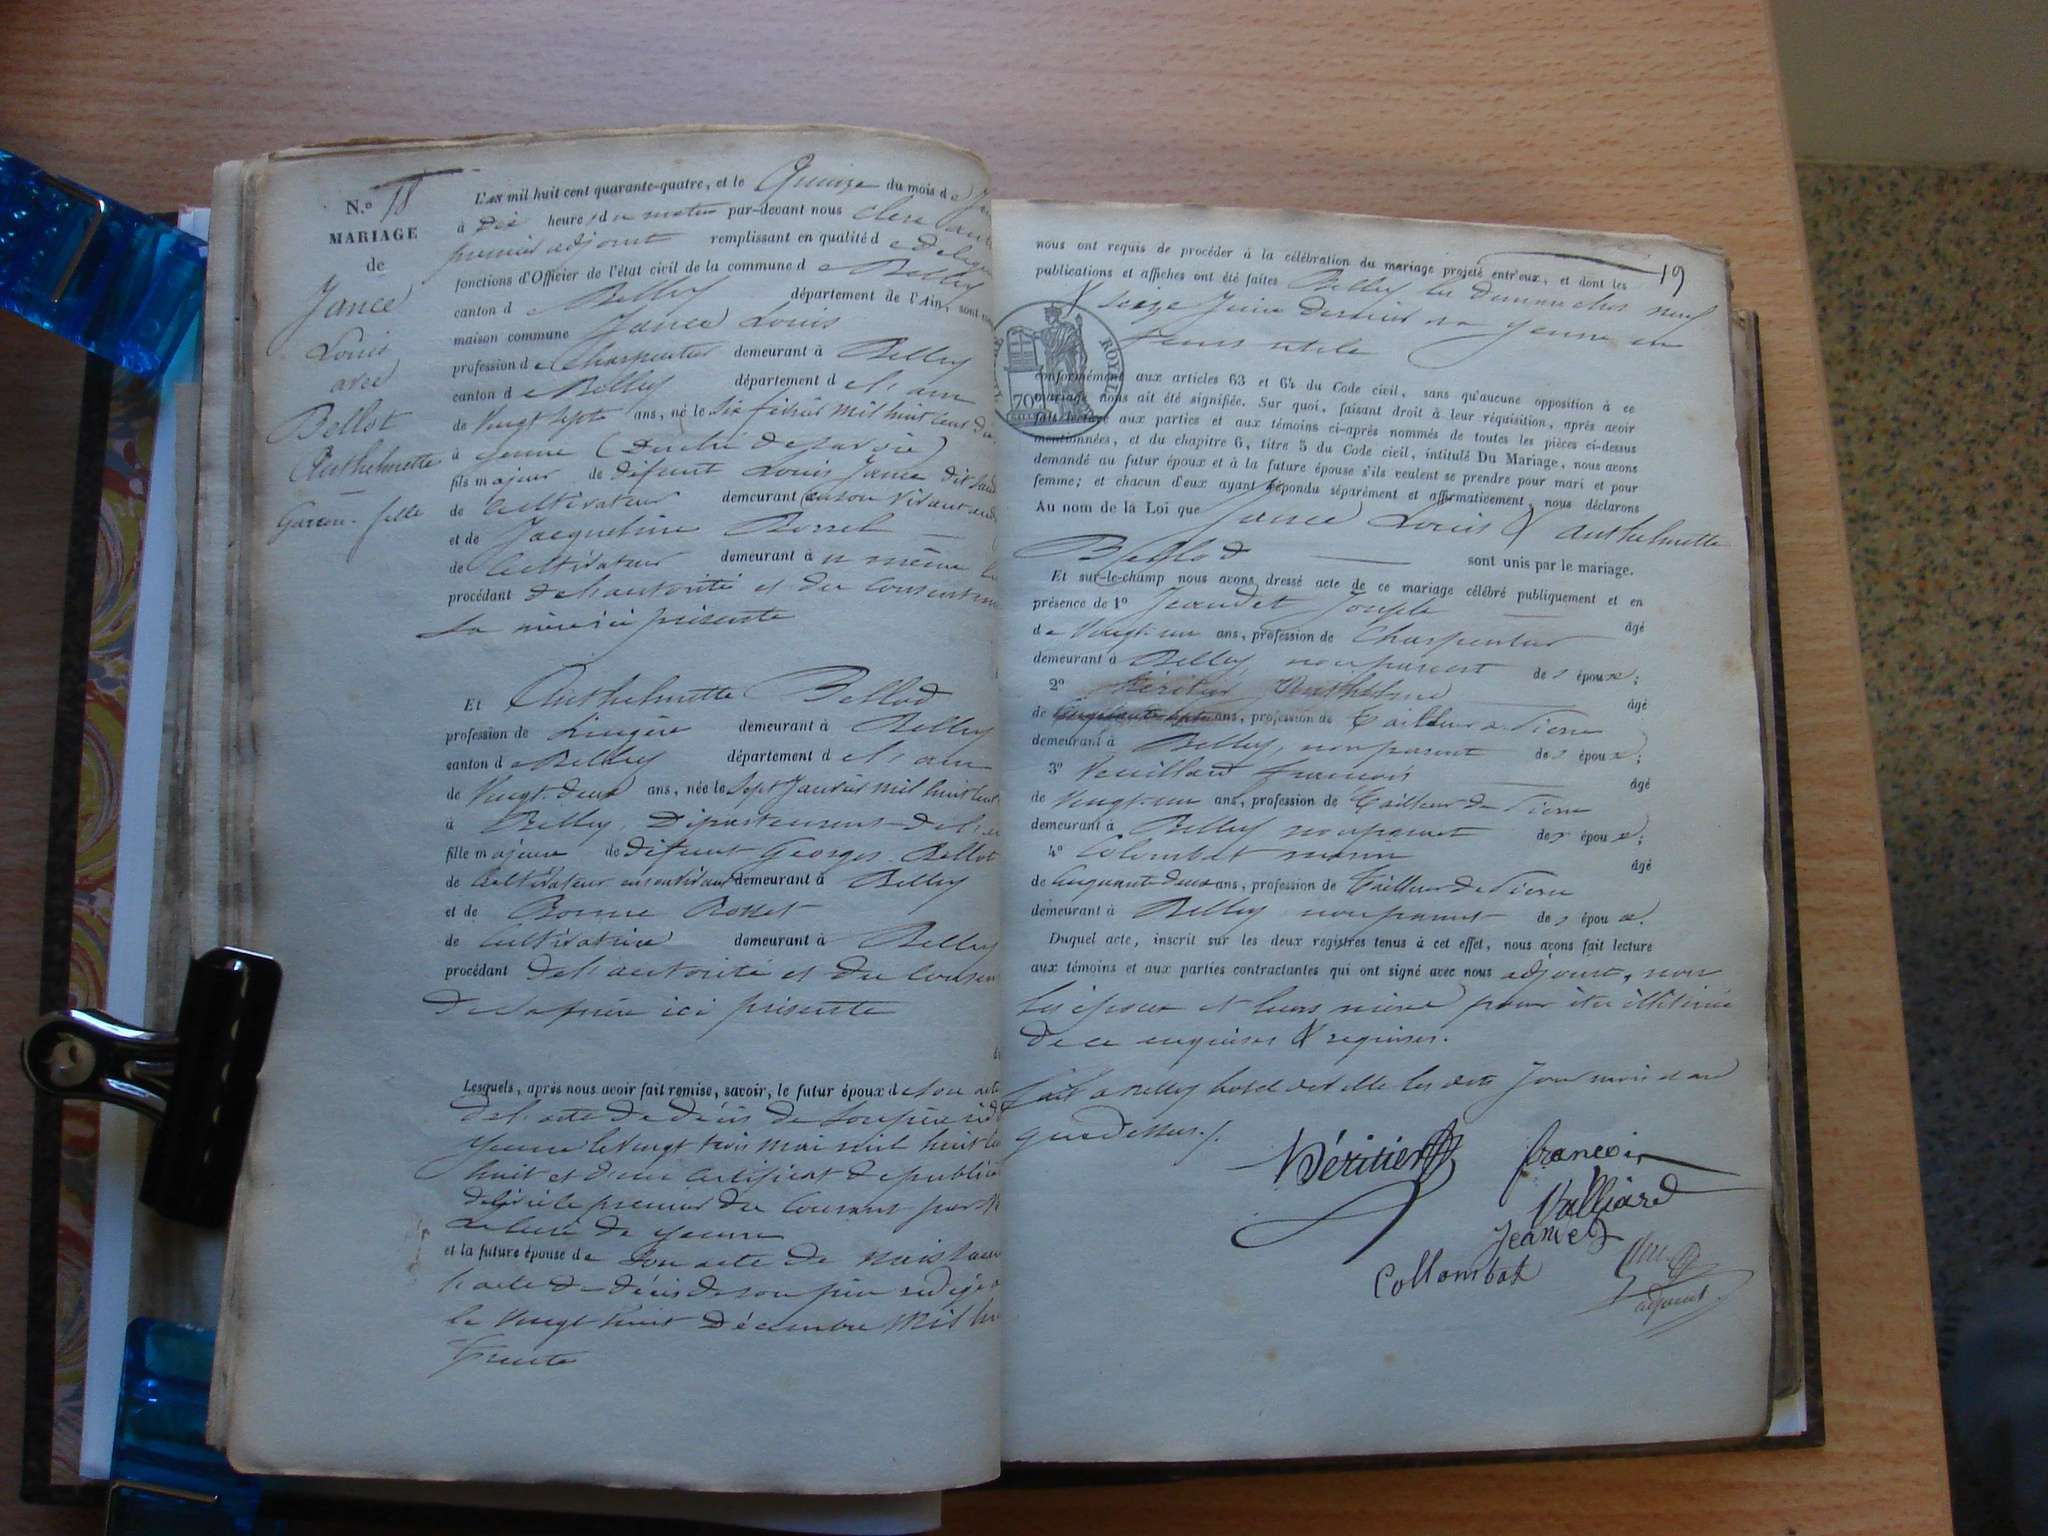 N.º 18
MARIAGE
de
Jance
Louis
avec
Bellot
Anthelmette
Garçon - fille
L'an mil huit cent quarante-quatre, et le Quinze du mois de
à Dix heures du matin par-devant nous
premier adjoint remplissant en qualité de
fonctions d'Officier de l'état civil de la commune de Belley
canton de Belley département de l'Ain, sont
maison commune Jance Louis
profession de Charpentier demeurant à Belley
canton de Belley département de l'ain
de Vingt sept ans, né le Six février mil huit cent
à yenne (Duché de Savoie)
fils majeur de défunt Louis Jance dit
de Cultivateur demeurant en son vivant
et de Jacqueline Borrel
de Cultivateur demeurant à u même
procédant de l'autorité et du
sa mère ici présente
Et Anthelmette Bellod
profession de Lingère demeurant à Belley
canton de Belley département de l'ain
de Vingt-deux ans, née le Sept Janvier mil huit cent
à Belley, Département de l'
fille majeure de défunt Georges Bellot
de Cultivateur en son vivant demeurant à Belley
et de Bonne Rosset
de Cultivatrice demeurant à Belley
procédant de l'autorité et du
de sa mère ici présente
Lesquels, après nous avoir fait remise, savoir, le futur époux de son acte
de l'acte de décès de son père
yenne le Vingt trois mai mil huit
huit et d'un certificat de
délivré le premier du Courant par M
Le Curé de yenne
et la future épouse de son acte de
l'acte de décès de son père rédigé
le Vingt huit Décembre Mil
Trente
19
nous ont requis de procéder à la célébration du mariage projeté entr'eux, et dont les
publications et affiches ont été faites Belley les dimanches neuf
& seize Juin dernier yenne en
tems utile
ROYAL
70
conformément aux articles 63 et 64 du Code civil, sans qu'aucune opposition à ce
mariage nous ait été signifiée. Sur quoi, faisant droit à leur réquisition, après avoir
fait lecture aux parties et aux témoins ci-après nommés de toutes les pièces ci-dessus
mentionnées, et du chapitre 6, titre 5 du Code civil, intitulé Du Mariage, nous avons
demandé au futur époux et à la future épouse s'ils veulent se prendre pour mari et pour
femme; et chacun d'eux ayant répondu séparément et affirmativement, nous déclarons
Au nom de la Loi que Jance Louis & Anthelmette
Bellod sont unis par le mariage.
Et sur-le-champ nous avons dressé acte de ce mariage célébré publiquement et en
présence de 1º Jeandet Joseph âgé
de Vingt-un ans, profession de Charpentier
demeurant à Belley, non parent des époux;
2º Héritier Anthelme âgé
de ans, profession de Tailleur de Pierre
demeurant à Belley, non parent des époux;
3º françois âgé
de Vingt-un ans, profession de Tailleur de Pierre
demeurant à Belley non parent des époux;
4º Colombet âgé
de Cinquante deux ans, profession de Tailleur de Pierre
demeurant à Belley non parent des époux.
Duquel acte, inscrit sur les deux registres tenus à cet effet, nous avons fait lecture
aux témoins et aux parties contractantes qui ont signé avec nous adjoint, non
les époux et leurs mères pour être illitérés
de ce enquises & requises.
fait à Belley hotel de ville les dits Jour mois et an
que dessus./.
Héritier
francois
Valliard
Jeandet
Collombat
adjoint